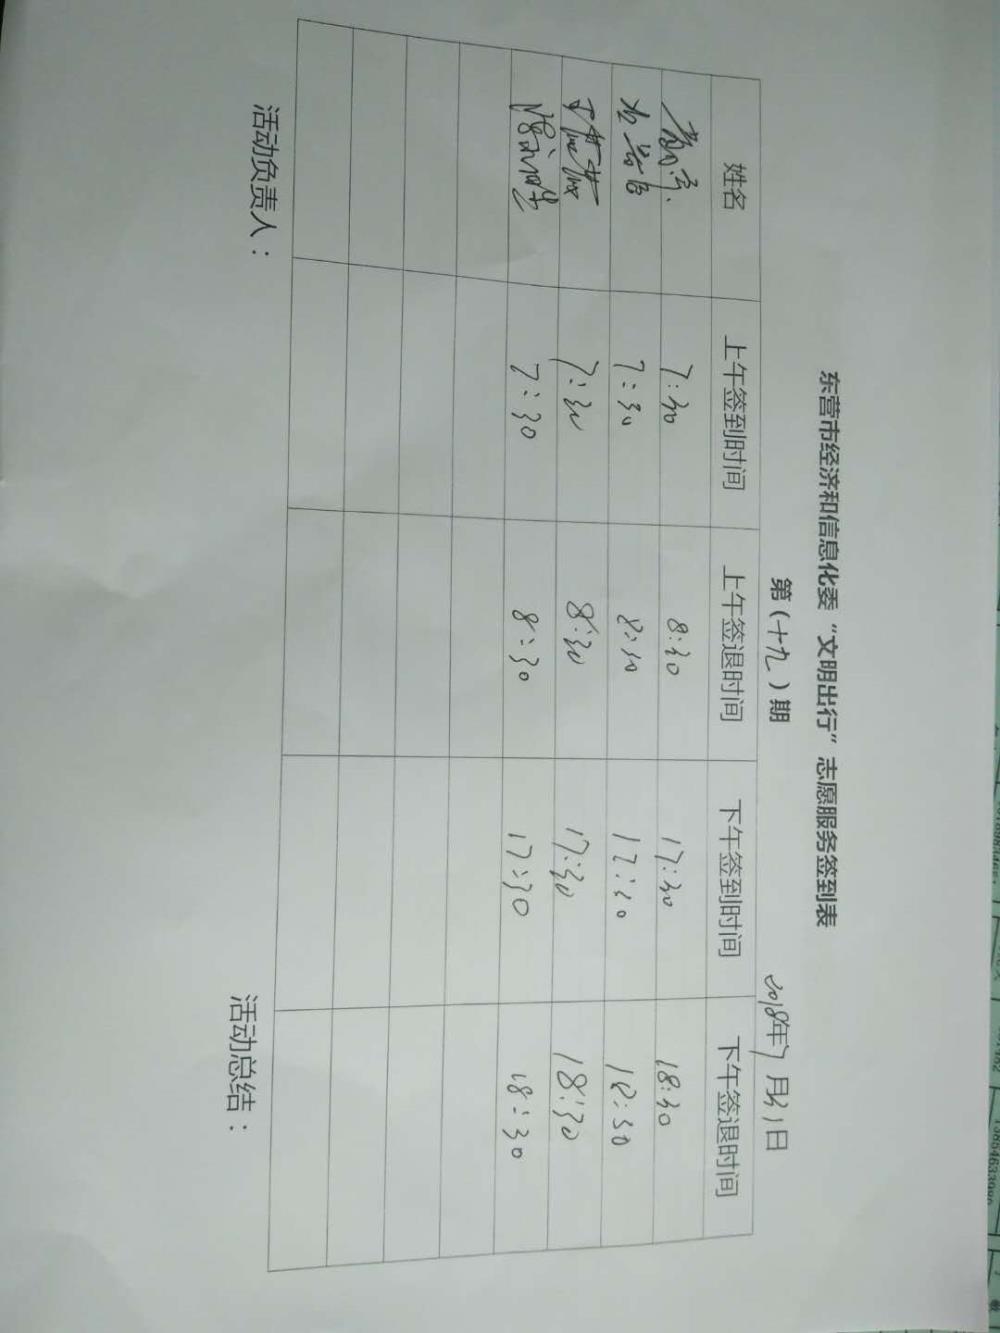 东营市经济和信息化委“文明出行”志愿服务签到表
第(十九)期
2018年7月31日
姓名 上午签到时间 上午签退时间 下午签到时间 下午签退时间
7:30 8:30 17:30 18:30
7:30 8:30 17:30 18:30
7:30 8:30 17:30 18:30
7:30 8:30 17:30 18:30
活动负责人: 活动总结: